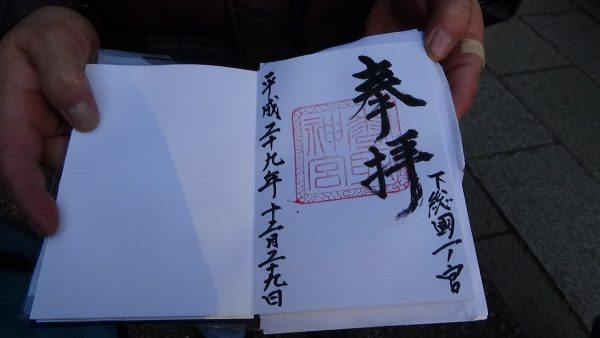 下総國一ノ宮
奉拝
香取神宮
平成二十九年十二月二十九日